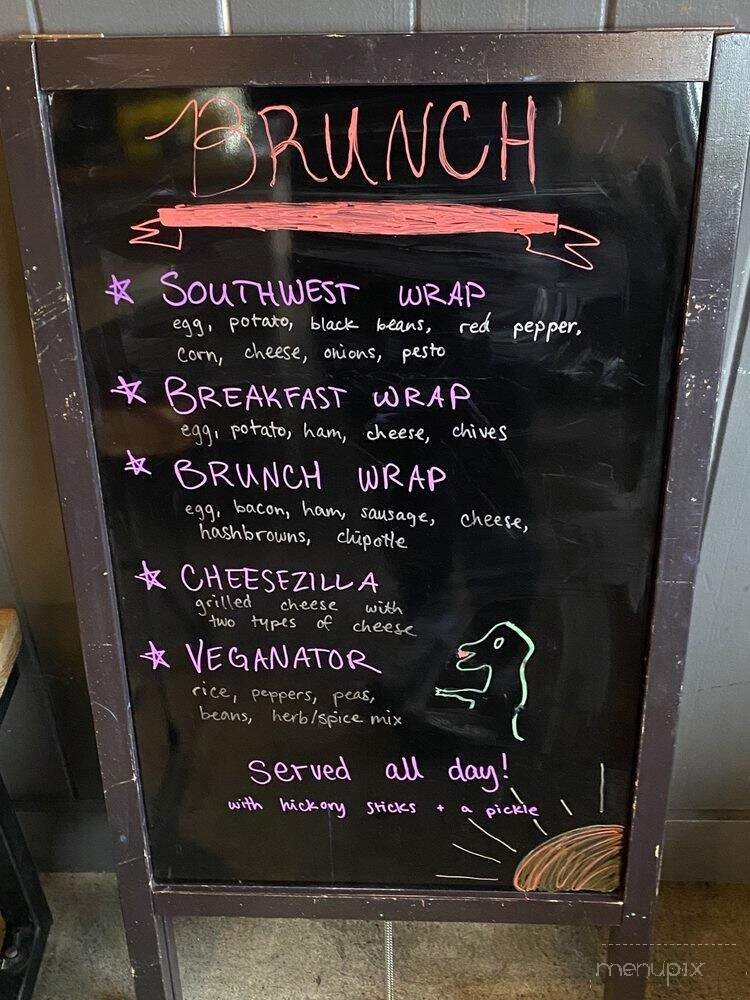 BRUNCH
SOUTHWEST WRAP
egg, potato, black beans, red pepper,
corn, cheese, onions, pesto
BREAKFAST WRAP
egg, potato, ham, cheese, chives
BRUNCH WRAP
egg, bacon, ham, sausage, cheese,
hashbrowns, chipotle
CHEESEZILLA
grilled cheese with
two types of cheese
VEGANATOR
rice, peppers, peas,
beans, herb/spice mix
served all day!
with hickory sticks + a pickle
menupix